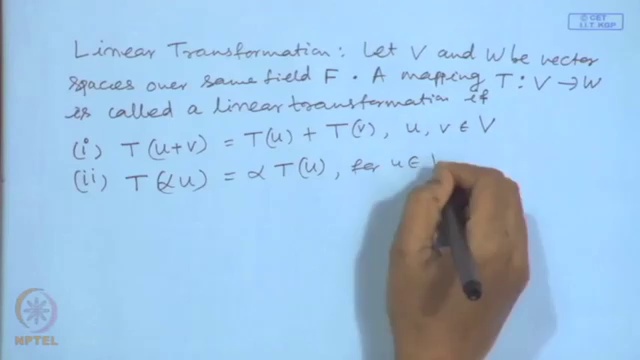 © CET
I.I.T. KGP
Linear Transformation: Let V and W be vector
spaces over same field F. A mapping T: V → W
is called a linear transformation if
(i) T(u+v) = T(u) + T(v), u, v ∈ V
(ii) T(αu) = α T(u), for u ∈
NPTEL